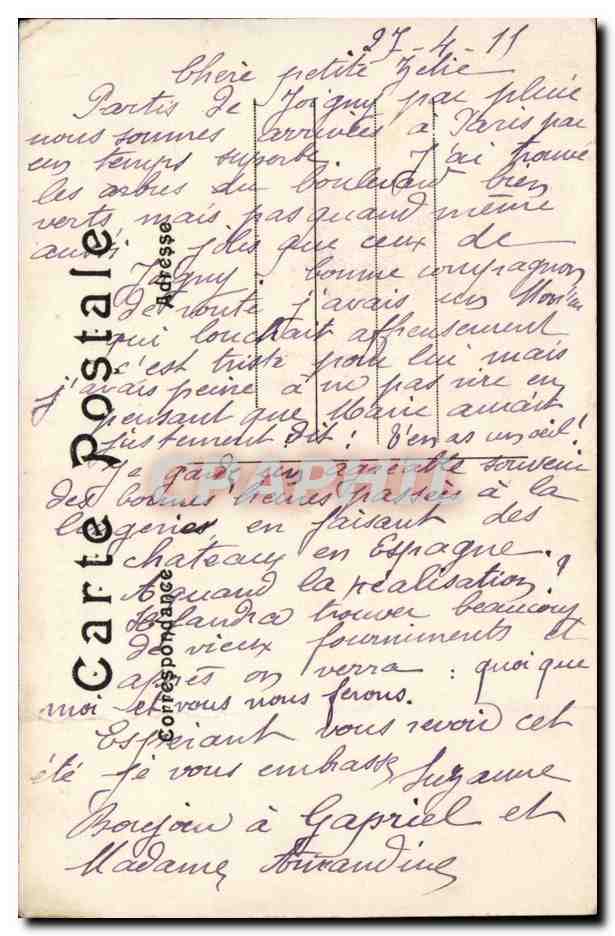 27-4-11
Chère petite Zélie
Partis de Joigny par pluie
nous sommes arrivées à Paris par
un temps superbe. J'ai trouvé
les arbres du boulevard bien
verts mais pas quand même
aussi jolis que ceux de
Joigny. bonne compagnon
de route j'avais un
qui louchait affreusement
c'est triste pour lui mais
j'avais peine à ne pas rire en
pensant que Marie aurait
justement dit : T'en as un œil !
Je garde un agréable souvenir
des bonnes heures passées à la
en faisant des
chateaux en Espagne.
A quand la réalisation ?
Il faudra trouver beaucoup
de vieux fourniments et
après on verra : quoi que
moi et vous nous ferons.
Espérant vous revoir cet
été je vous embrasse Suzanne
Bonjour à Gabriel et
Madame Amandine
Carte Postale
Correspondance
Adresse
CPAPHIL